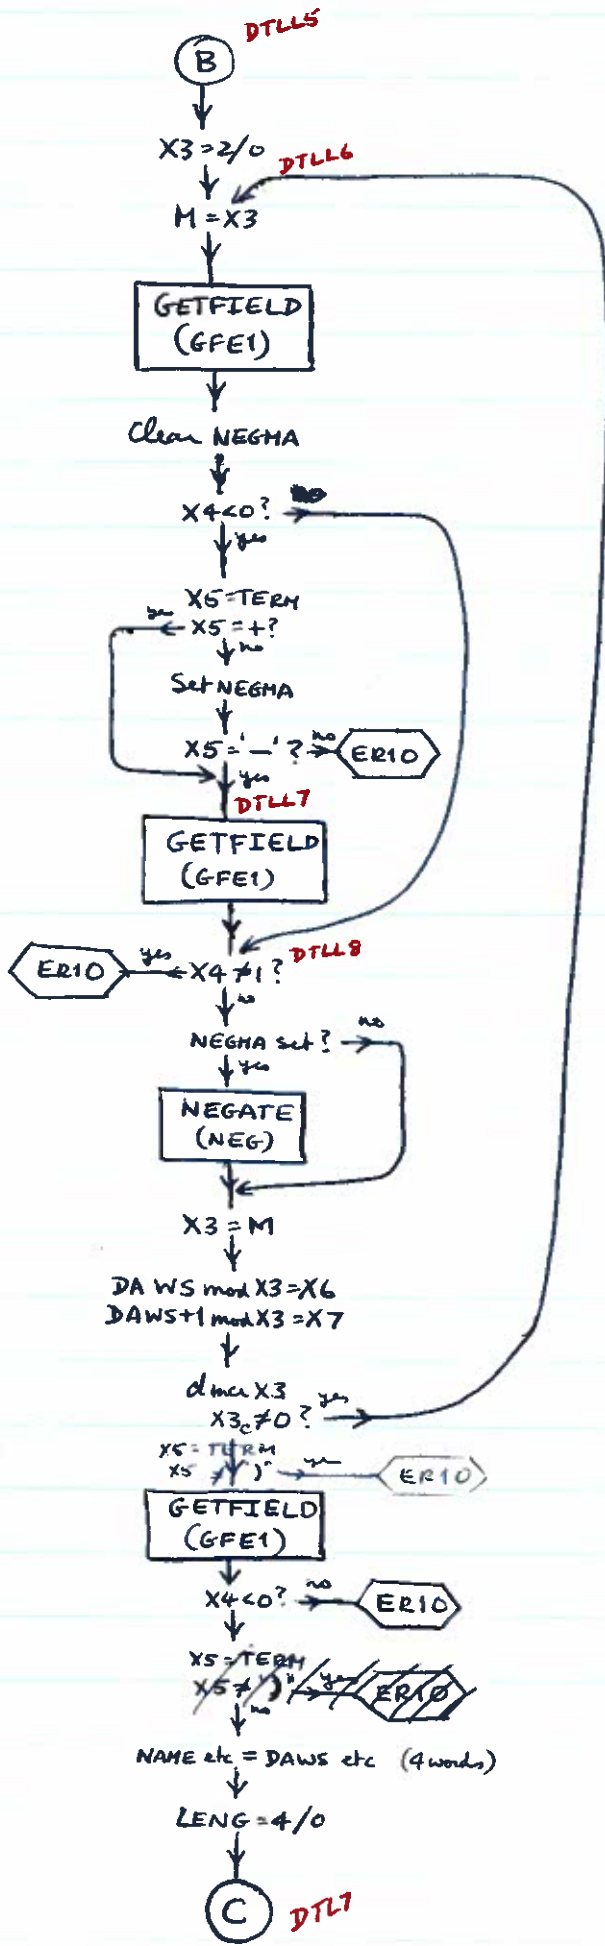 DTLL5
B
X3=2/0
DTLL6
M=X3
GETFIELD
(GFE1)
Clear NEGMA
X4<0? no
yes
X5=TERM
yes X5=+?
no
Set NEGMA
X5='-'? no ER10
yes
DTLL7
GETFIELD
(GFE1)
DTLL8
ER10 yes X4≠1?
no
NEGMA set? no
yes
NEGATE
(NEG)
X3=M
DAWS mod X3=X6
DAWS+1 mod X3=X7
X3
X3c≠0? yes
X5=TERM
X5 ≠ ")" yes ER10
GETFIELD
(GFE1)
X4<0? no ER10
X5=TERM
X5≠")" yes ER10
no
NAME etc = DAWS etc (4 words)
LENG=4/0
C
DTL7